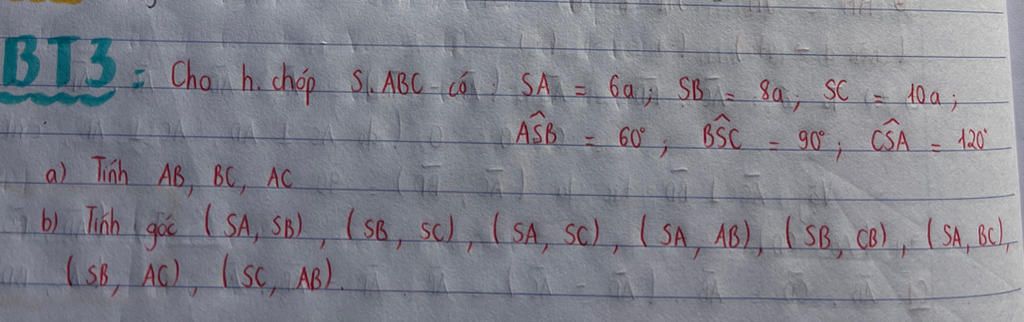 BT3: Cho h. chóp S.ABC có: SA = 6a; SB = 8a; SC = 10a;
ASB = 60°, BSC = 90°; CSA = 120°
a) Tính AB, BC, AC
b) Tính góc (SA, SB), (SB, SC), (SA, SC), (SA, AB), (SB, CB), (SA, BC),
(SB, AC), (SC, AB).